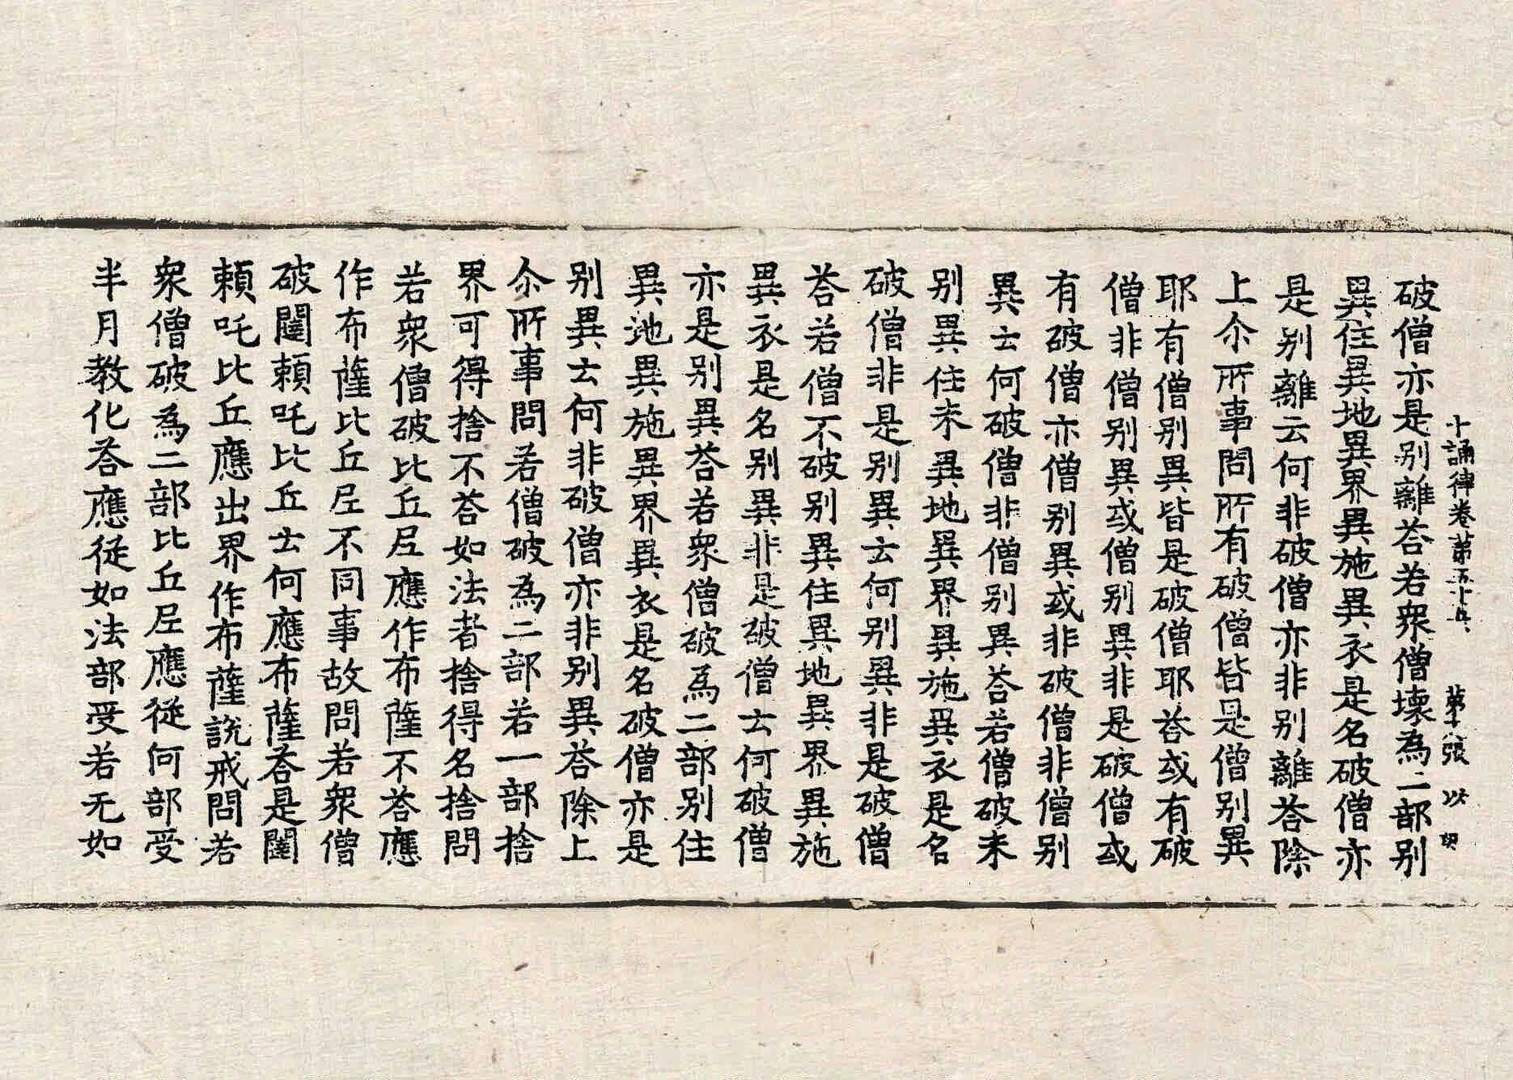 十誦律卷第五十 第十八張 以
破僧亦是别離荅若衆僧壞為二部别
異住異地異界異施異衣是名破僧亦
是别離云何非破僧亦非别離荅除
上尒所事問所有破僧皆是僧别異
耶有僧别異皆是破僧耶荅或有破
僧非僧别異或僧别異非是破僧或
有破僧亦僧别異或非破僧非僧别
異云何破僧非僧别異荅若僧破未
别異住未異地異界異施異衣是名
破僧非是别異云何别異非是破僧
荅若僧不破别異住異地異界異施
異衣是名别異非是破僧云何破僧
亦是别異荅若衆僧破為二部别住
異地異施異界異衣是名破僧亦是
别異云何非破僧亦非别異荅除上
尒所事問若僧破為二部若一部捨
界可得捨不荅如法者捨得名捨問
若衆僧破比丘尼應作布薩不荅應
作布薩比丘尼不同事故問若衆僧
破闥頼吒比丘云何應布薩荅是闥
頼吒比丘應出界作布薩説戒問若
衆僧破為二部比丘尼應從何部受
半月教化荅應從如法部受若无如